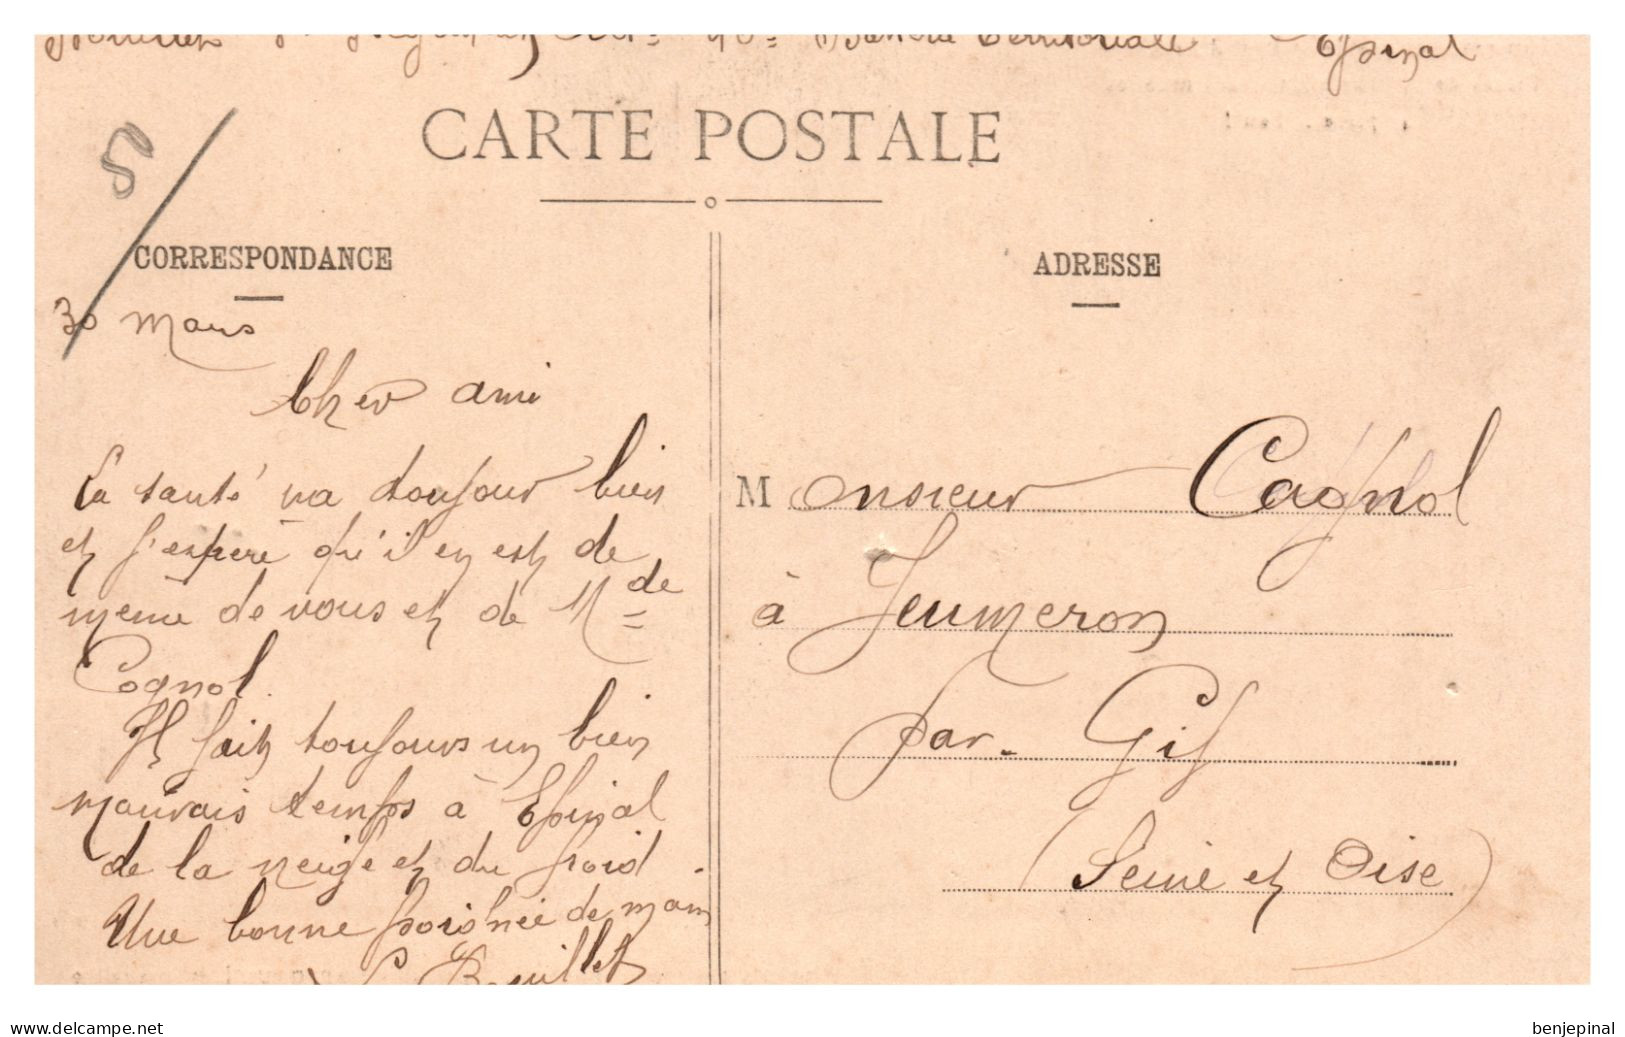 Territoriale Epinal
CARTE POSTALE
5
CORRESPONDANCE
30 Mars
Cher ami
La santé va toujour bien
et j'espere qu'il en est de
meme de vous et de Mde
Cognol.
Il fait toujours un bien
mauvais temps à Epinal
de la neige et du froid.
Une bonne poignée de main
Bouillet
ADRESSE
Monsieur Cagnol
à Jeumeron
par. Gif
(Seine et Oise)
delcampe.net
benjepinal